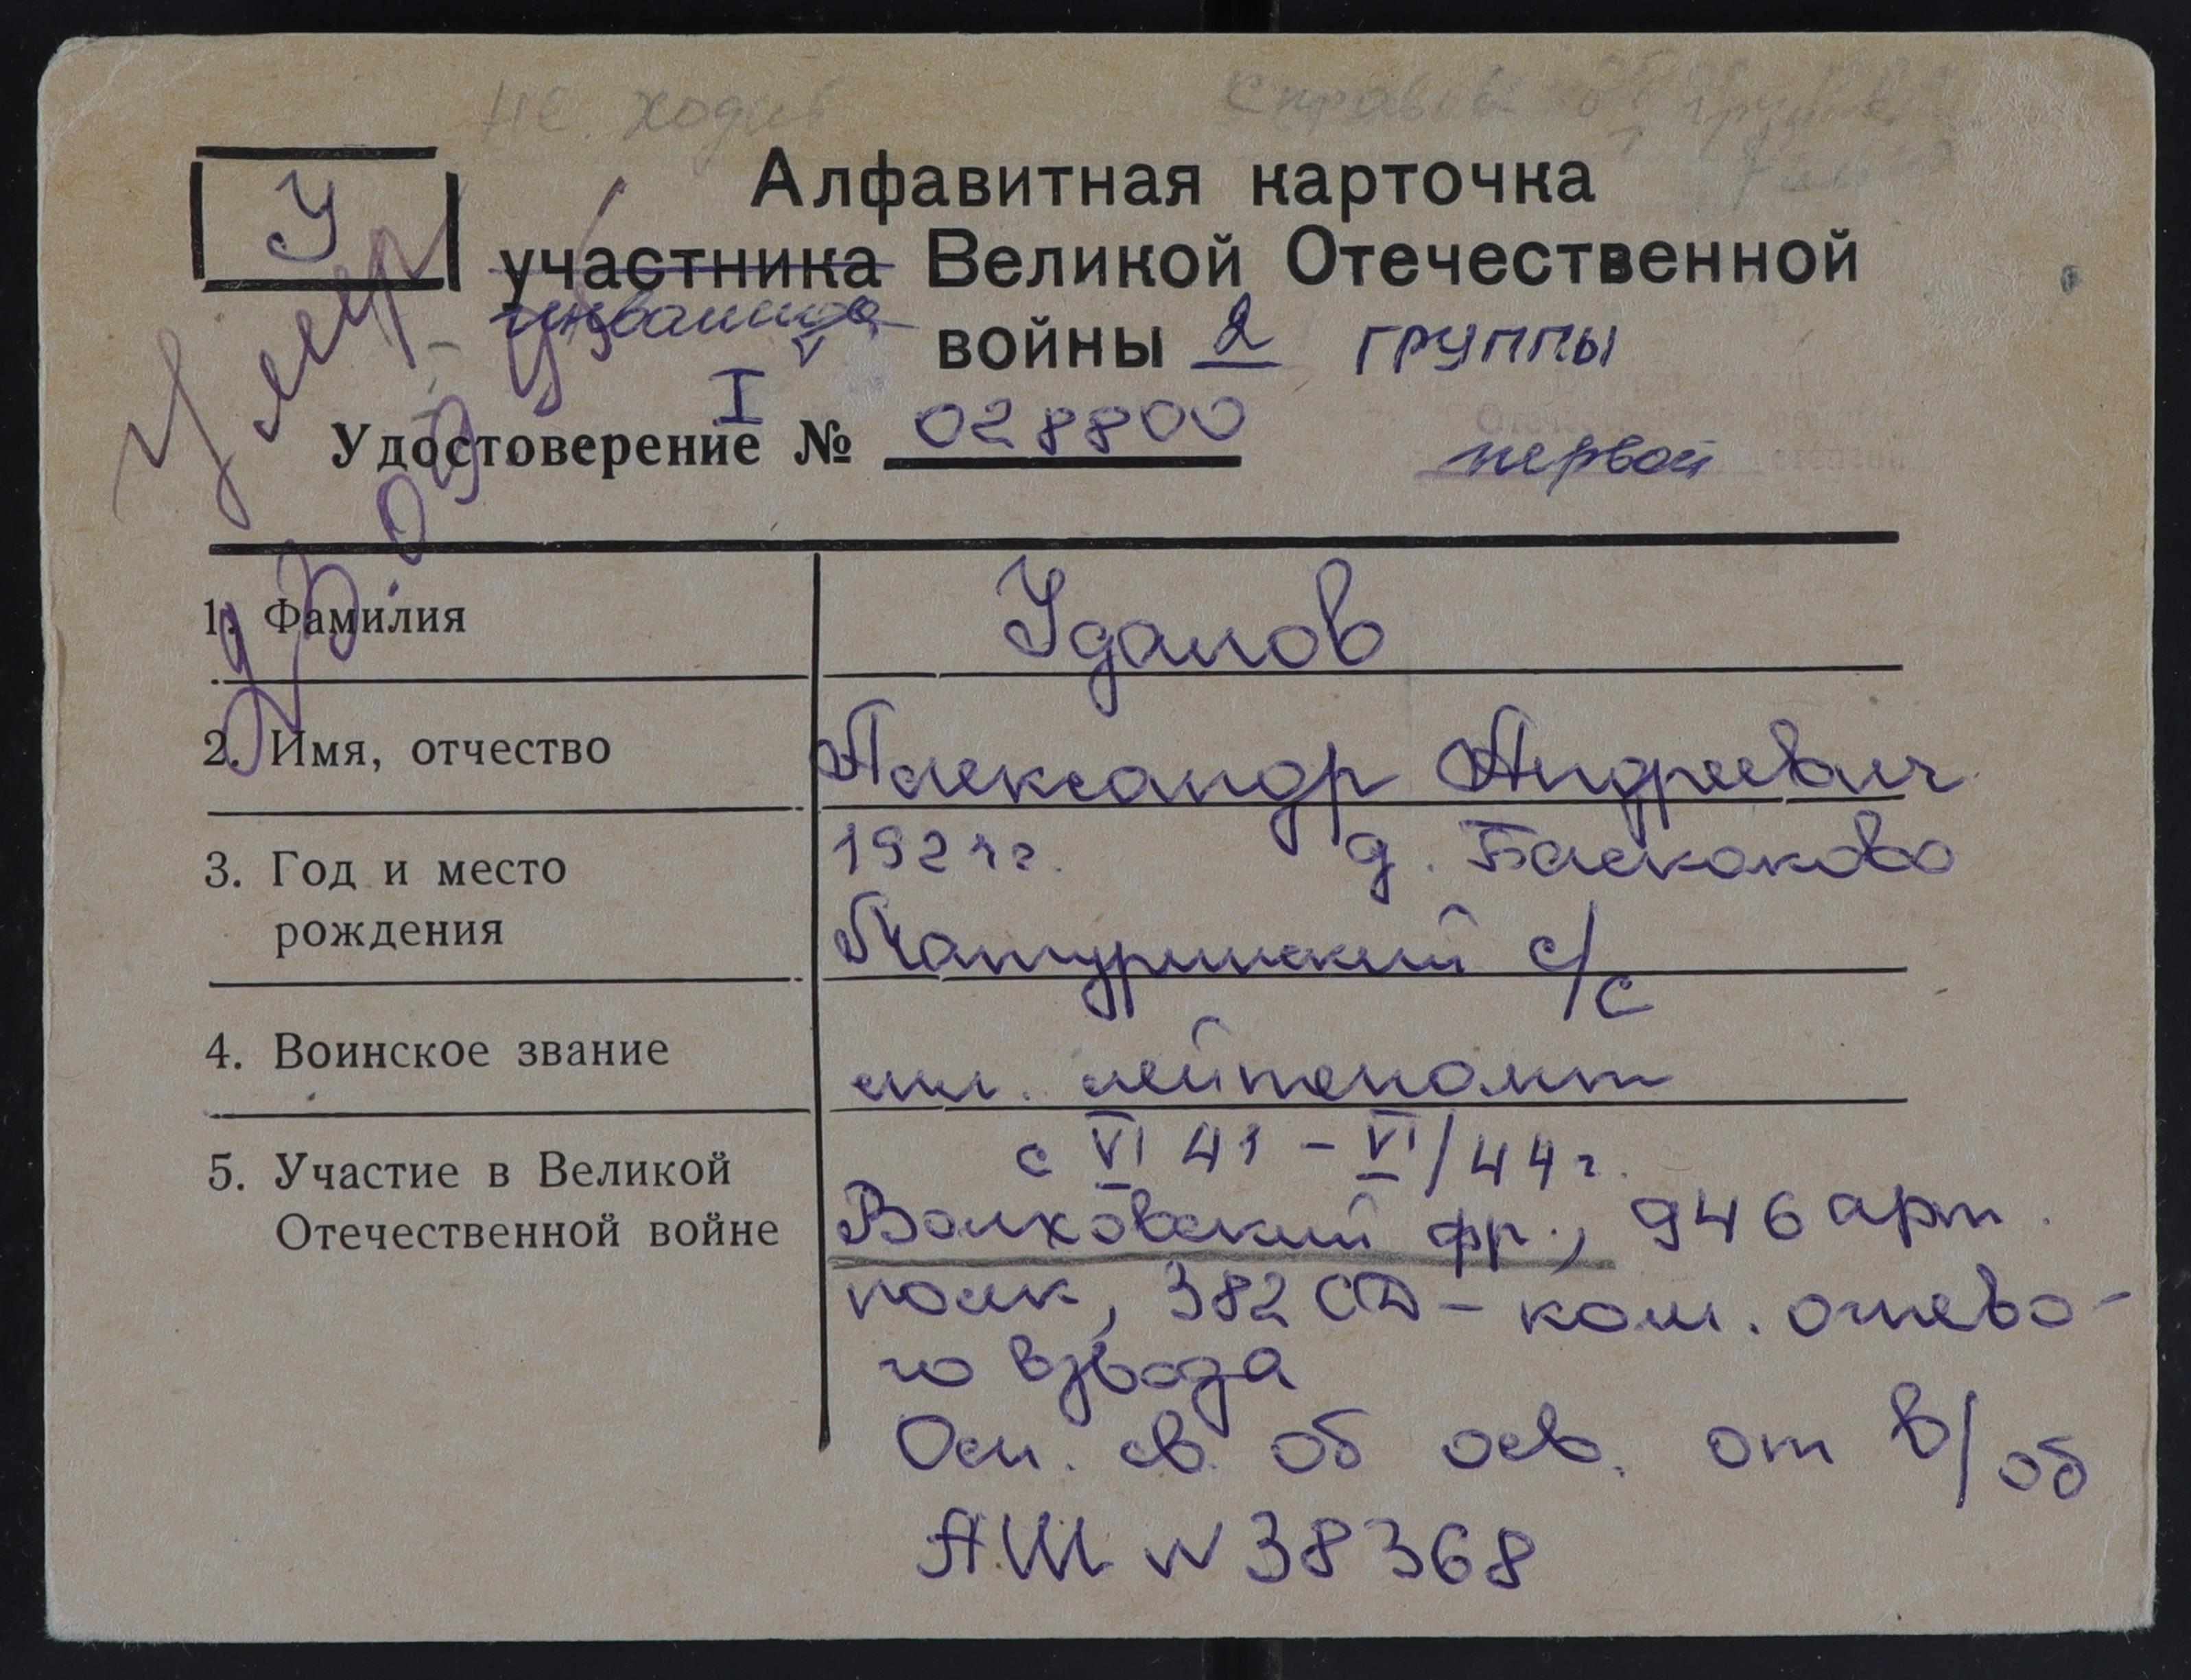 не ходит Справка об
У
Алфавитная карточка
участника Великой Отечественной
инвалида войны 2 группы
I
Удостоверение № 028800
первой
Умер
1. Фамилия Удалов
2. Имя, отчество Александр Андреевич
3. Год и место 1921г. д. Баскаково
рождения Патуринский с/с
4. Воинское звание мл. лейтенант
5. Участие в Великой с VI 41 - VI/44г.
Отечественной войне Волховский фр., 946 арт.
полк, 382 СД - ком. огнево-
го взвода
Осн. св. об осв. от в/об
АШ № 38368